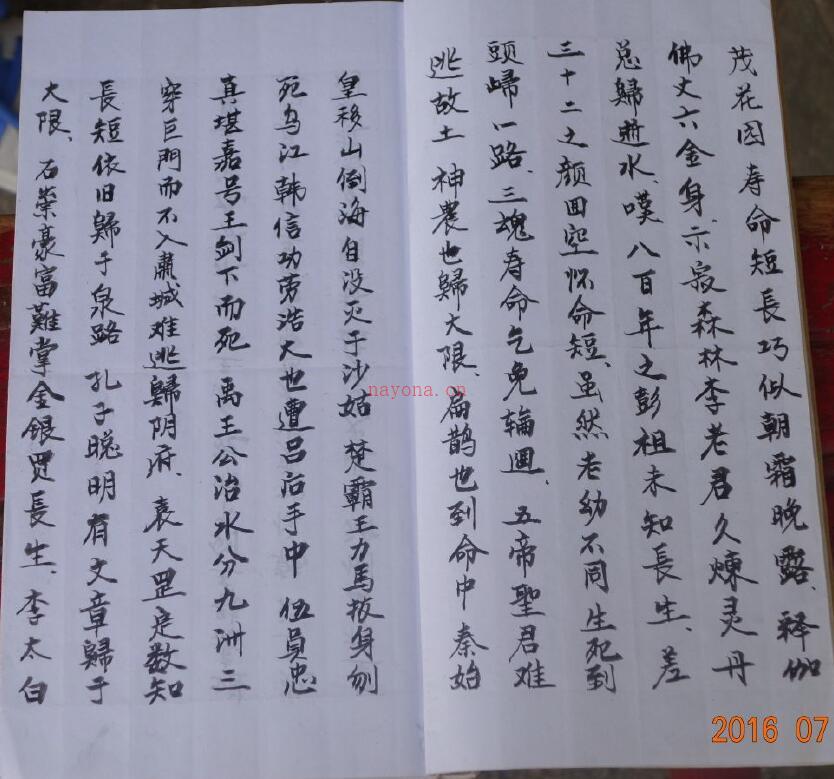 茂花园寿命短長巧似朝霜晚露、释伽
佛丈六金身、示寂森林李老君久煉灵丹
总歸逝水、嘆八百年之彭祖未知長生、差
三十二之颜回空怀命短、虽然老幼不同生死到
頭歸一路、三魂寿命乞免輪迴、五帝聖君难
逃故土 神農也歸大限、扁鹊也到命中秦始
皇移山倒海自没灭于沙姑 楚霸王力馬拔身刎
死乌江韩信功劳浩大也遭吕后手中 伍員忠
真堪嘉号王剑下而死 禹王公治水分九洲三
穿巨門而不入蕭城难逃歸阴府、袁天罡定数知
長短依旧歸于泉路 孔子聪明有文章歸于
大限、石崇豪富難掌金银買長生、李太白
nayona.cn
2016 07